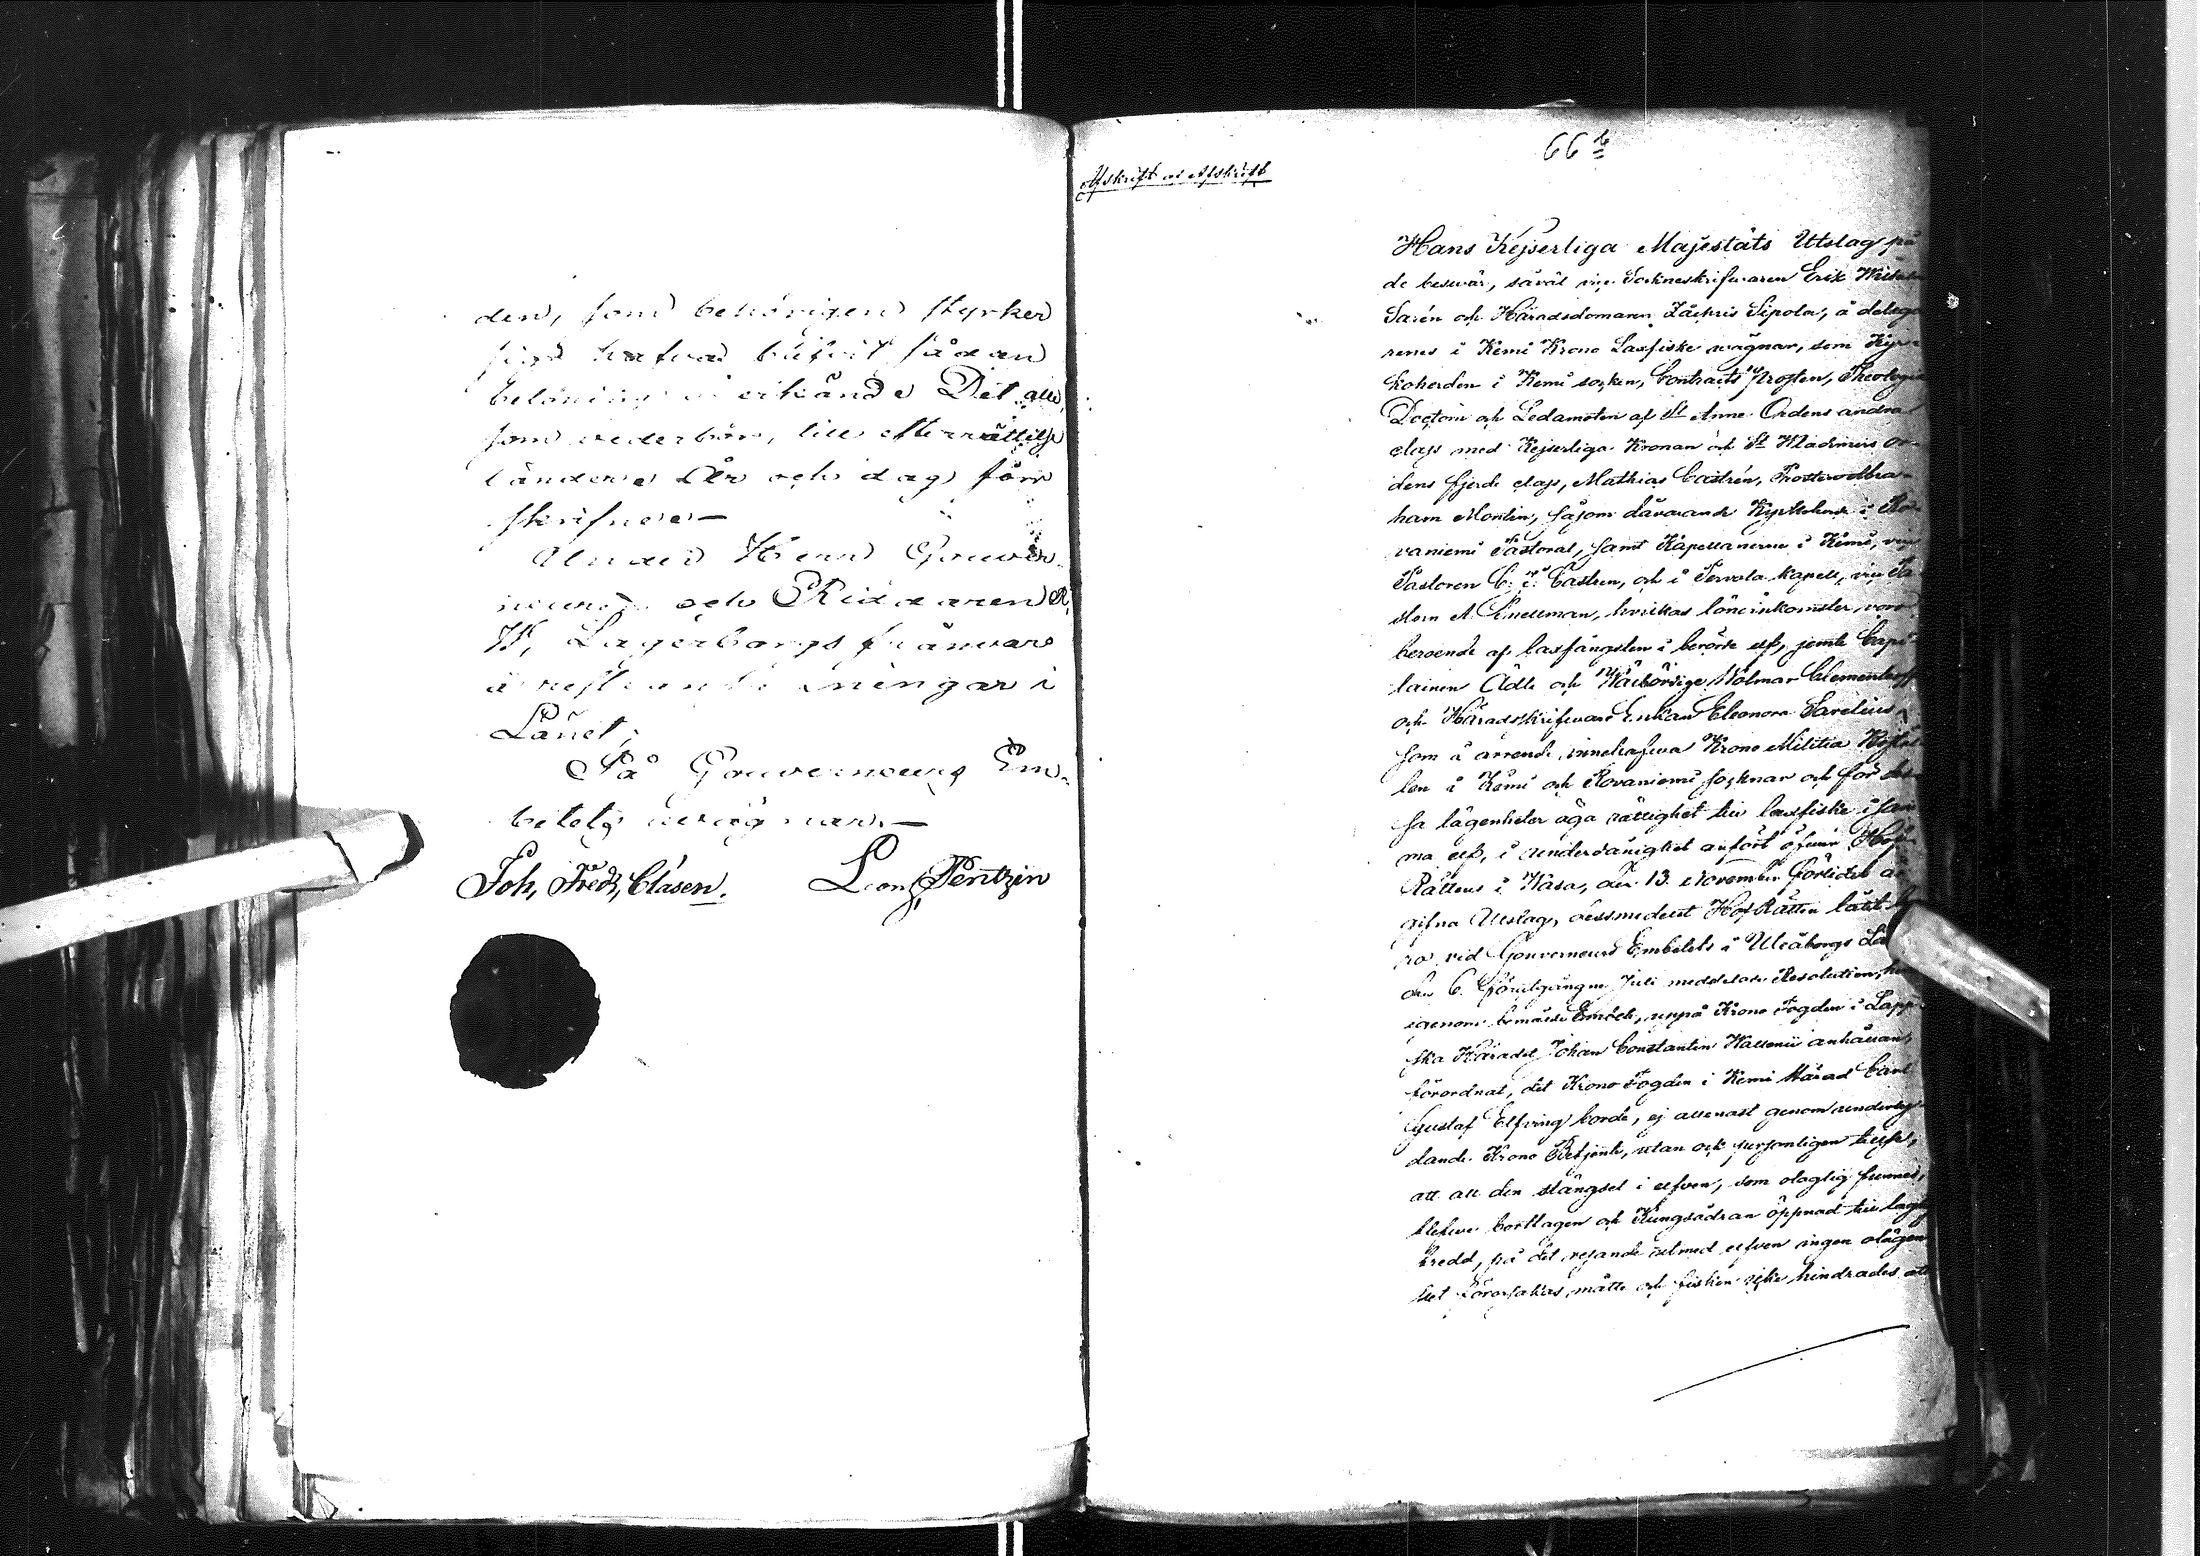 den, som behörigen styrker
sig hafva blifvit sådan
belöning erkände Det alle,
som vederbör, till efterrättelse
länder År och dag förr
skrifne.—
Under Herr Gouver-
neuren och Riddaren R,
W, Lagerborgs frånvaro
å resl i
Länet;
På Gouverneurs Em-
betets vägnar.—
Joh, Fredr, Clasen. Leon, Pentzin
66
Afskrift af Afskrift
Hans Kejserliga Majestäts Utslag på
de besvär, såväl vice Sockneskrifwaren Erik
Sarén och Häradsdomaren Zachris Sipola, å delega-
renes i Kemi Krono Laxfiske wägnar, som Kyr-
koherden i Kemi socken, Contracts Prosten, Theologie
Doctorn och Ledamoten af St Anne Ordens andra
class med Kejserliga Kronan och St Wladimirs or-
dens fjerde class, Mathias Castrén, Prosten Abra-
ham Montin, såsom dåvarande Kyrkoherde i Ro-
vaniemi Pastorat, samt Kapellanerne i Kemi, vice
Pastoren C. Castren, och i Tervola kapell, vice Pa-
storn A Snellman, hvilkas löneinkomster voro
beroende af laxfångsten i berörde elf, jemte Capi-
tainen Ädle och Wälbördige Wolmar Clementeoff
och Häradsskrifware Enkan Eleonora Sarelius,
som å arrende innehafwa Krono Militia Boställ-
len i Kemi och Rovaniemi socknar och för des-
sa lägenheter äga rättighet till laxfiske i sam-
ma elf, i underdånighet anfört öfwer Hof-
Rättens i Wasa, den 13. November förlidet år
gifna Utslag, dessmedelst Hof Rätten låtit
ro vid Gouverneurs Embetets i Uleåborgs Län
den 6. föregångne Juli meddelade Resolution, hvar-
igenom bemälde Embete, uppå Krono Fogden i Lapp-
ska Häradet Johan Constantin Wallenii anhållan,
förordnat, det Krono Fogden i Kemi Härad Carl
Gustaf Elfving borde, ej allenast genom underly-
dande Krono Betjente, utan ock personligen tillse,
att all den stängsel i elfven, som olaglig funnes,
blefwe borttagen och Kungsådran öppnad till laglig
bredd, på det resande utmed elfven ingen olägen-
het förorsakas måtte och fisken icke hindrades att